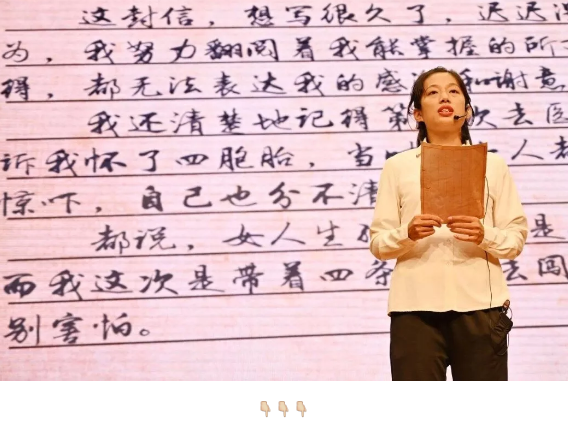 这封信，想写很久了，迟迟
为，我努力翻阅着我能掌握的所
得，都无法表达我的感 和谢意
我还清楚地记得第 次去医
诉我怀了四胞胎，当 人都
惊吓，自己也分不清
都说，女人生 是
而我这次是带着四条 去闯
别害怕。